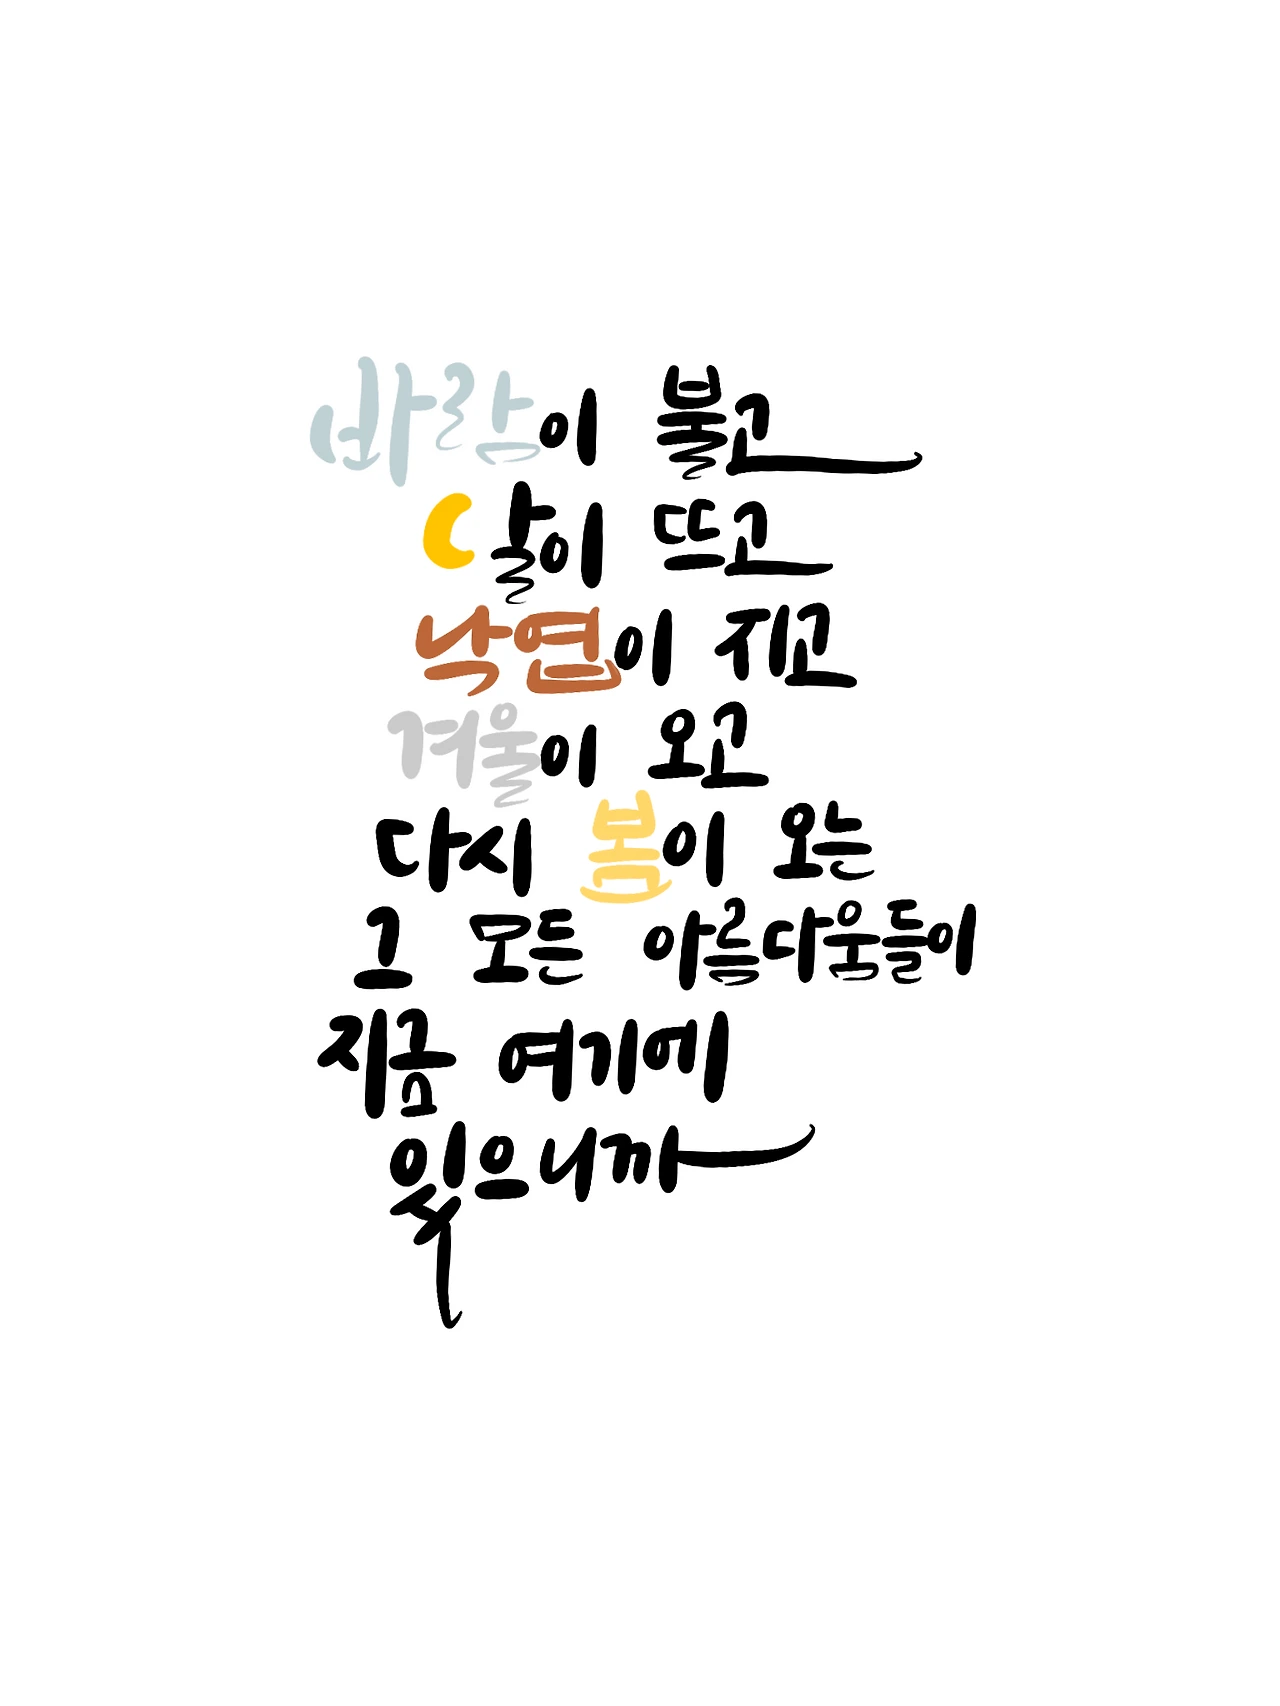 바람이 불고
달이 뜨고
낙엽이 지고
겨울이 오고
다시 봄이 오는
그 모든 아름다움들이
지금 여기에
있으니까